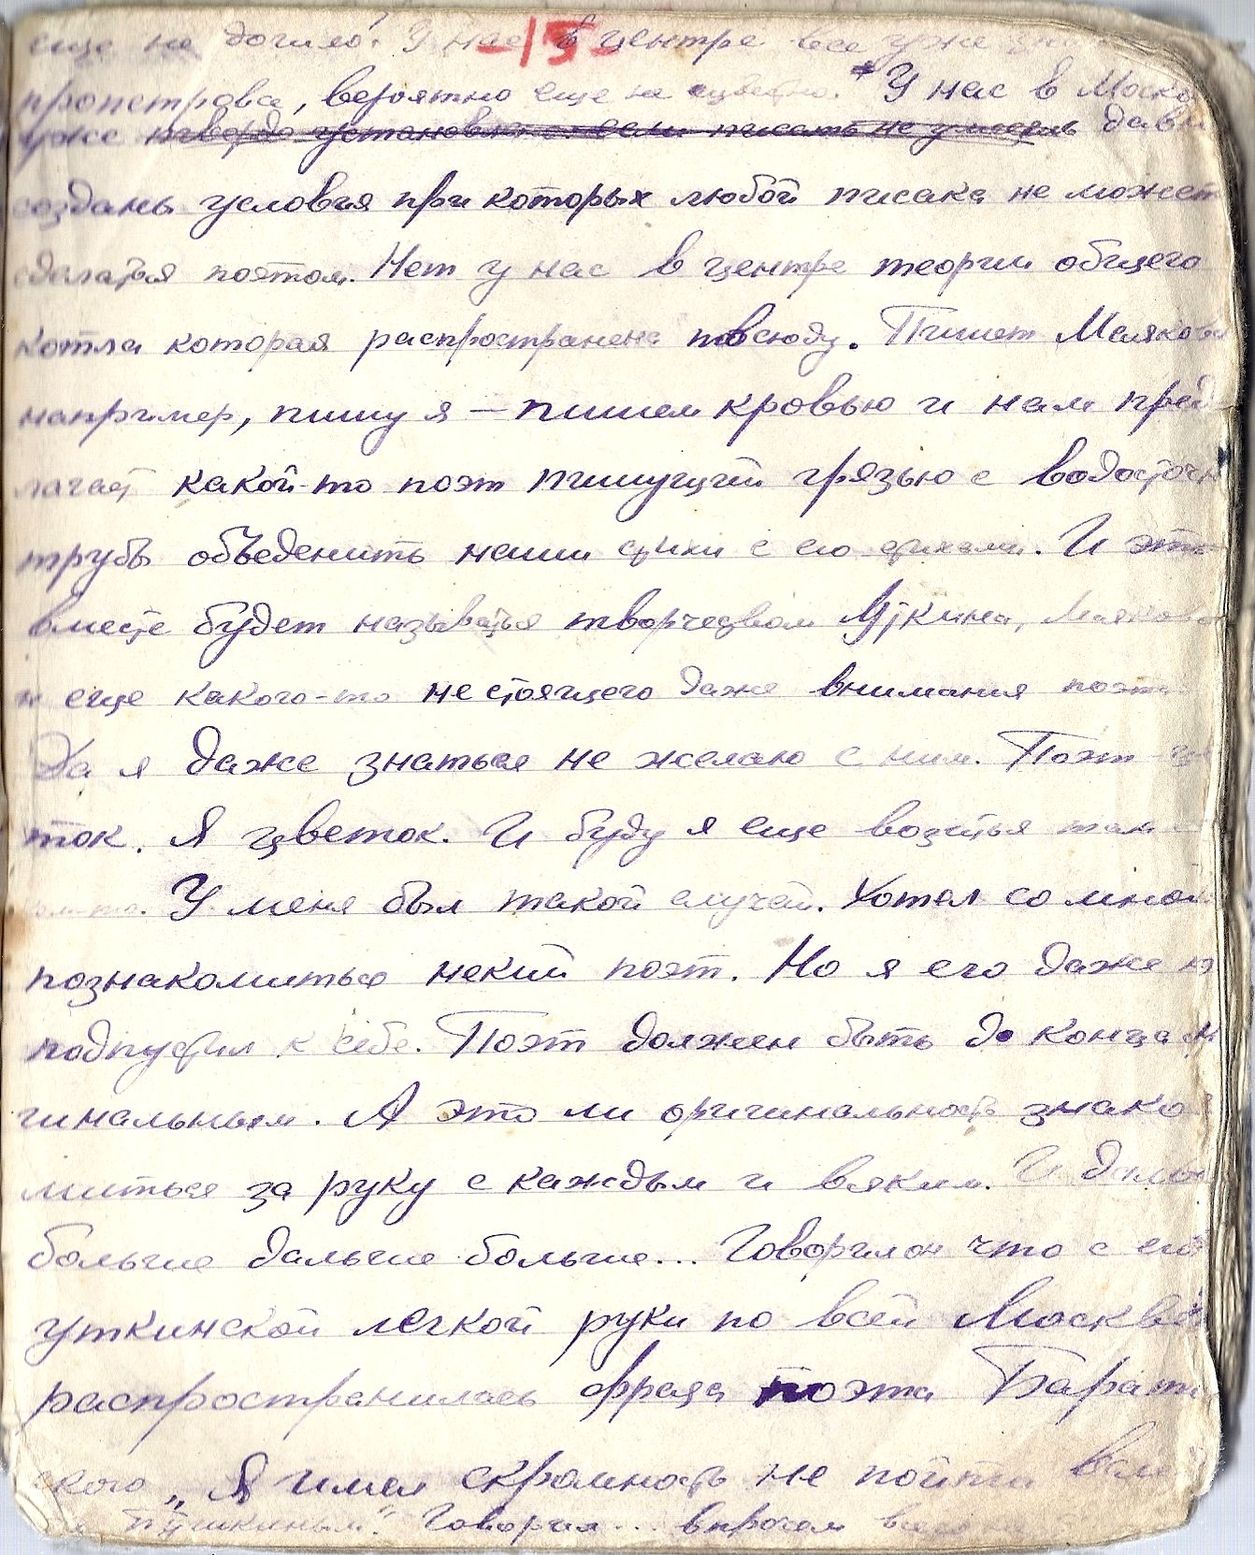 еще не дошло. У нас в центре все уже
-15-
пропетрова, вероятно еще не У нас в Моск
уже твердо установлено если писать не умеешь давн
созданы условия при которых любой писака не может
сделаться поэтом. Нет у нас в центре теории общего
котла которая распространена повсюду. Пишет Маяковск
например, пишу я — пишем кровью и нам пред
лагает какой-то поэт пишущий грязью с водосточн
трубы объеденить наши стихи с его стихами. И это
вместе будет называться творчеством Уткина, Маяковск
и еще какого-то не стоящего даже внимания поэта
Да я даже знаться не желаю с ним. Поэт - цв
ток. Я цветок. И буду я еще возиться там с
кем-то. У меня был такой случай. Хотел со мной
познакомиться некий поэт. Но я его даже н
подпустил к себе. Поэт должен быть до конца ори
гинальным. А это ли оригинальность знако
миться за руку с каждым и всяким. И дальше
больше дальше больше... Говорил он что с его
уткинской легкой руки по всей Москве
распространилась фраза поэта Барати
ского „Я имел скромность не пойти всле
Пушкиным". Говорил... впрочем